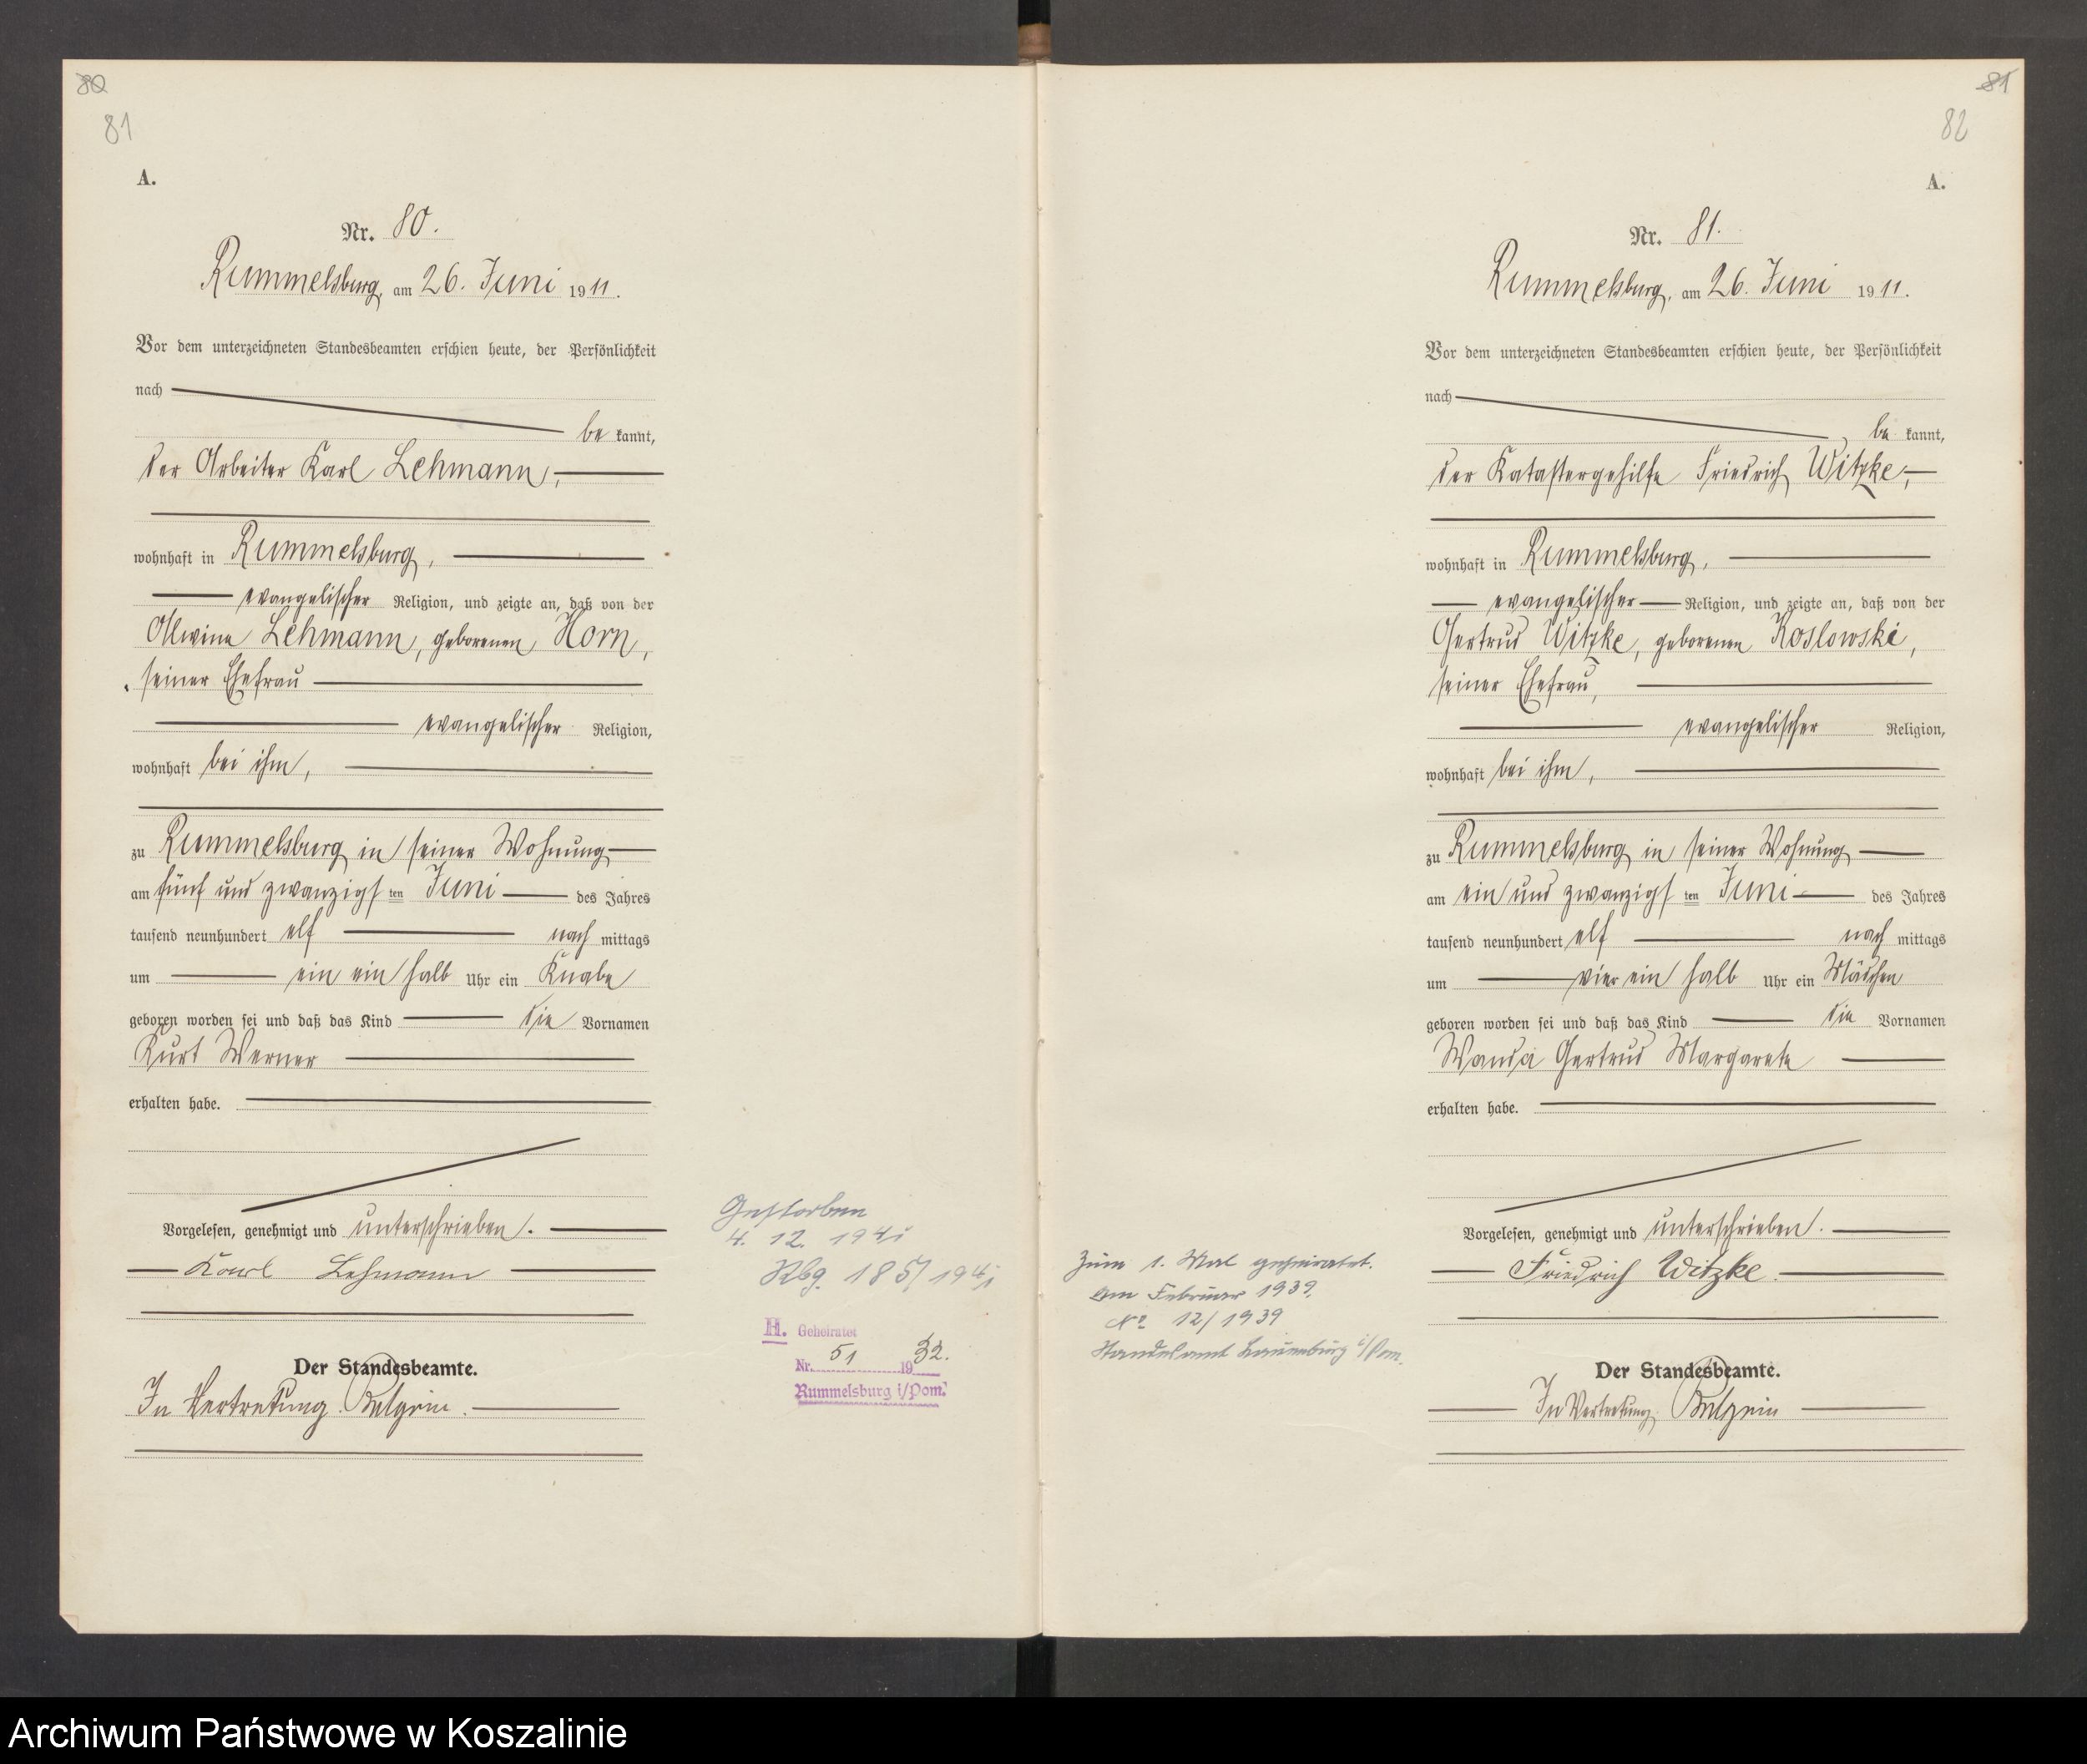 80
81
A.
Nr. 80.
Rummelsburg, am 26. Juni 1911.
Vor dem unterzeichneten Standesbeamten erschien heute, der Persönlichkeit
nach
be kannt,
der Arbeiter Karl Lehmann,
wohnhaft in Rummelsburg,
evangelischer Religion, und zeigte an, daß von der
Alwine Lehmann, geborenen Horn,
seiner Ehefrau
evangelischer Religion,
wohnhaft bei ihm,
zu Rummelsburg in seiner Wohnung
am fünf und zwanzigsten Juni des Jahres
tausend neunhundert elf nach mittags
um ein ein halb Uhr ein Knabe
geboren worden sei und daß das Kind die Vornamen
Kurt Werner
erhalten habe.
Vorgelesen, genehmigt und unterschrieben.
Karl Lehmann
Der Standesbeamte.
In Vertretung
Gestorben
4. 12. 1941
Rbg. 185/1941
H. Geheiratet
Nr. 51 1932.
Rummelsburg i/Pom.
81
82
A.
Nr. 81.
Rummelsburg, am 26. Juni 1911.
Vor dem unterzeichneten Standesbeamten erschien heute, der Persönlichkeit
nach
be kannt,
der Katastergehilfe Friedrich Witzke,
wohnhaft in Rummelsburg,
evangelischer Religion, und zeigte an, daß von der
Gertrud Witzke, geborenen Koslowski,
seiner Ehefrau,
evangelischer Religion,
wohnhaft bei ihm,
zu Rummelsburg in seiner Wohnung
am ein und zwanzigsten Juni des Jahres
tausend neunhundert elf nach mittags
um vier ein halb Uhr ein Mädchen
geboren worden sei und daß das Kind die Vornamen
Wanda Gertrud Margarete
erhalten habe.
Vorgelesen, genehmigt und unterschrieben.
Friedrich Witzke.
Der Standesbeamte.
In Vertretung
Zum 1. Mal geheiratet.
am Februar 1939.
No 12/1939
Standesamt Lauenburg i/Pom.
Archiwum Państwowe w Koszalinie